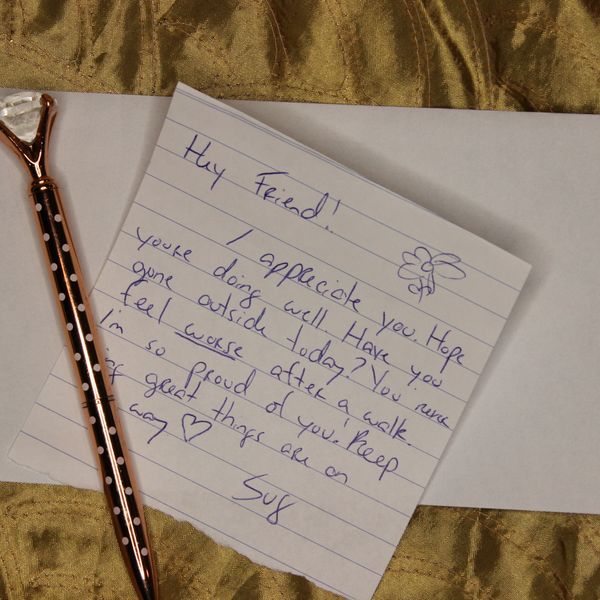 Hey Friend!
I appreciate you. Hope
you're doing well. Have you
gone outside today? You never
feel worse after a walk.
I'm so proud of you! Keep
great things are on
way ♡